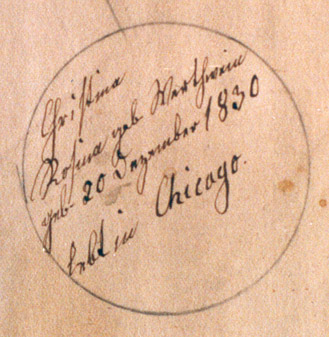 Christina
Rosina geb Werthwein
geb. 20 Dezember 1830
lebt in Chicago.